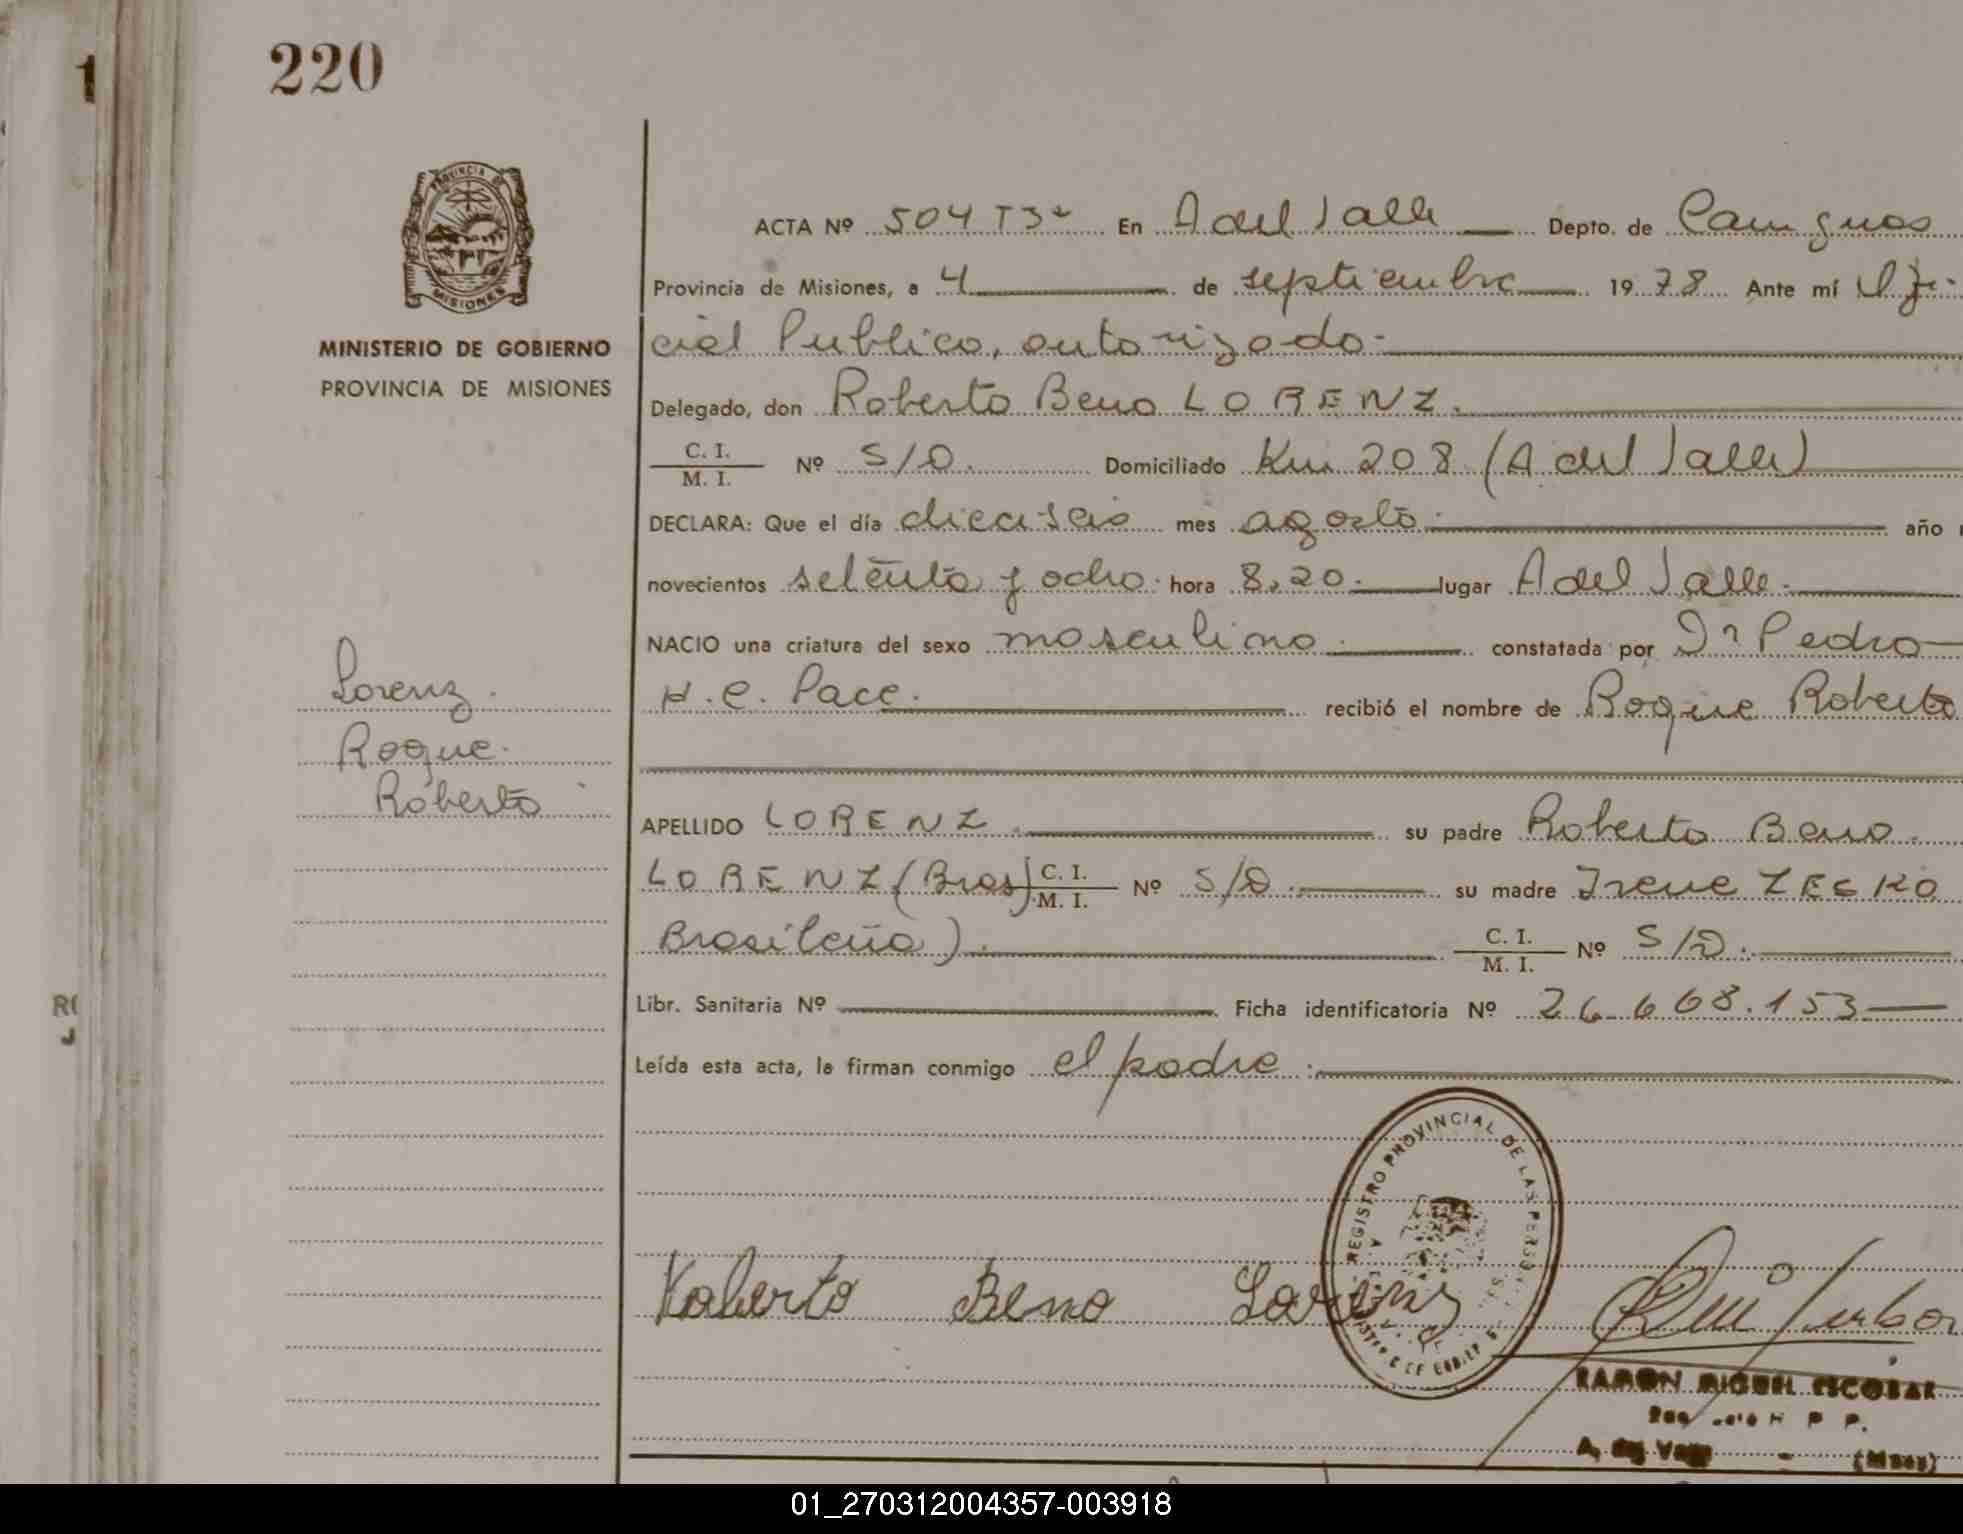 220
1
PROVINCIA DE
MISIONES
MINISTERIO DE GOBIERNO
PROVINCIA DE MISIONES
ACTA Nº 504 T3º En A del Valle Depto. de Cainguas
Provincia de Misiones, a 4 de septiembre 1978 Ante mí Ofi-
cial Publico, autorizado.-
Delegado, don Roberto Beno LORENZ.
C. I.
M. I. Nº S/D. Domiciliado Km 208 (A del Valle)
DECLARA: Que el día dieciseis mes agosto.- año
novecientos setenta y ocho. hora 8,20.- lugar A del Valle.-
NACIO una criatura del sexo masculino.- constatada por Dr Pedro
H. C. Pace. recibió el nombre de Roque Roberto
Lorenz.
Roque.
Roberto
APELLIDO LORENZ.- su padre Roberto Beno
LORENZ (Bras) C. I.
M. I. Nº S/D.- su madre Irene
Brasileña).- C. I.
M. I. Nº S/D.-
Libr. Sanitaria Nº Ficha identificatoria Nº 26.668.153
Leída esta acta, la firman conmigo el padre.-
REGISTRO PROVINCIAL DE LAS PERSONAS
Roberto Beno Lorenz
RAMON MIGUEL ESCOBAR
A. del Valle (Mnes)
01_270312004357-003918